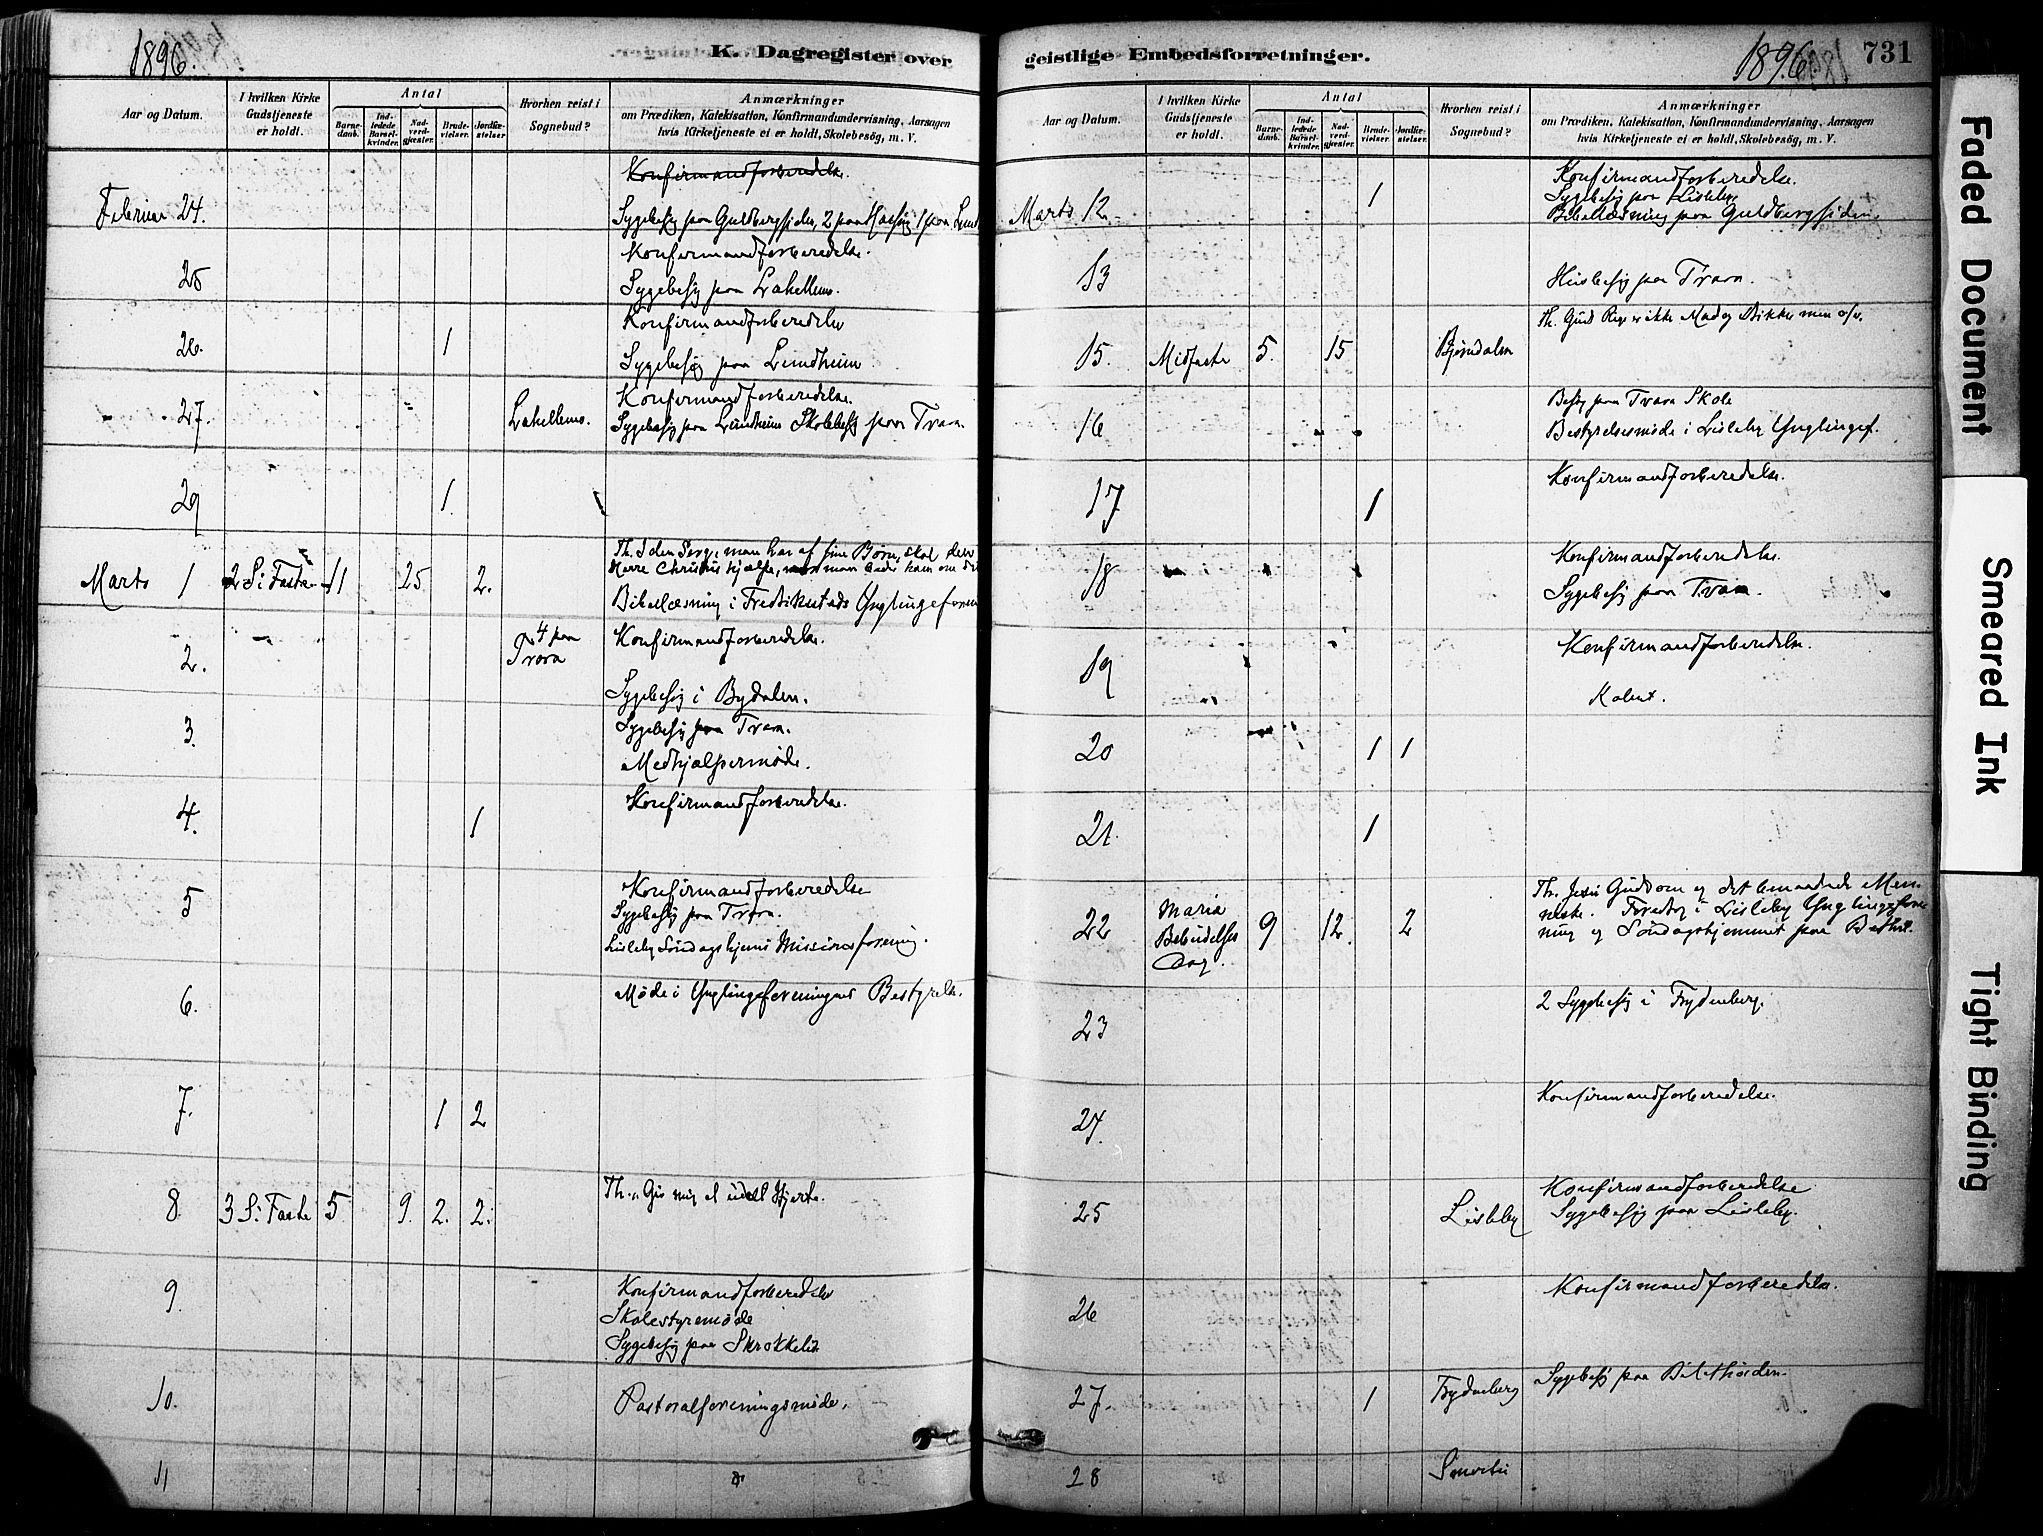 1896.
K. Dagregister over
Aar og Datum.
I hvilken Kirke
Gudstjeneste
er holdt.
Antal
Barne-
daab.
Ind-
ledede
Barsel-
kvinder.
Nad-
verd-
gjæster.
Brude-
vielser.
Jordfæ-
stelser
Hvorhen reist i
Sognebud?
Anmærkninger
om Prædiken, Katekisation, Konfirmandundervisning, Aarsagen
hvis Kirketjeneste ei er holdt, Skolebesög, m. V.
Konfirmandforberedelse.
Februar 24. Sygebesøg paa Guldbergsiden, 2 paa 1 paa
Konfirmandforberedelse.
25 Sygebesøg paa Lahellens.
Konfirmandforberedelse
26. 1 Sygebesøg paa Lundheim
Konfirmandforberedelse.
27. Lahellens. Sygebesøg paa Lundheim Skolebesøg paa Trara
29 1.
Marts 1 2 S. i Faste 11 25 2.
Herre Christus hjælpe,
Bibellæsning i Fredrikstads Ynglingeforen
4 paa
2. Trara Konfirmandforberedelse.
Sygebesøg i Bydalen.
3. Sygebesøg paa Trara.
Medhjælpermøde.
4. 1 Konfirmandforberedelse.
5 Konfirmandforberedelse
Sygebesøg paa Trara.
Lisleby Søndagshjems Missionsforening.
6. Møde i Ynglingeforeningens Bestyrelse.
7. 1 2
8 3 S. i Faste 5 9. 2. 2. Th. Giv mig et Hjerte.
9. Konfirmandforberedelse
Skolestyremøde
Sygebesøg paa
10. Pastoralforeningsmøde.
11
1896
731
geistlige Embedsforretninger.
Aar og Datum.
I hvilken Kirke
Gudstjeneste
er holdt.
Antal
Barne-
daab.
Ind-
ledede
Barsel-
kvinder.
Nad-
verd-
gjæster.
Brude-
vielser.
Jordfæ-
stelser.
Hvorhen reist i
Sognebud?
Anmærkninger
om Prædiken, Katekisation, Konfirmandundervisning, Aarsagen
hvis Kirketjeneste ei er holdt, Skolebesög, m. V.
Konfirmandforberedelse.
Marts 12 1 Sygebesøg paa Lisleby
Bibellæsning paa Guldbergsiden.
13 Husbesøg paa Trara.
Th. Guds Rige er ikke Mad og Drikke men o/v.
15. Midfaste 5. 15 Bjørndalen
16 Besøg paa Trara Skole
Bestyrelsesmøde i Lisleby Ynglingef.
17 1 Konfirmandforberedelse.
18 Konfirmandforberedelse
Sygebesøg paa Trara.
19 Konfirmandforberedelse.
20 1 1
21. 1
22 Maria
Bebudelses
Dag 9 12. 2
Th. Jesus Gudsom og det Men-
neske. Foredrag i Lisleby Ynglingefore
ning og Søndagshjemmet paa
23 2 Sygebesøg i Frydenberg.
24. Konfirmandforberedelse.
25 Lisleby Konfirmandforberedelse
Sygebesøg paa Lisleby.
26 Konfirmandforberedelse.
27. 1 Frydenberg Sygebesøg paa
28
Faded Document
Smeared Ink
Tight Binding